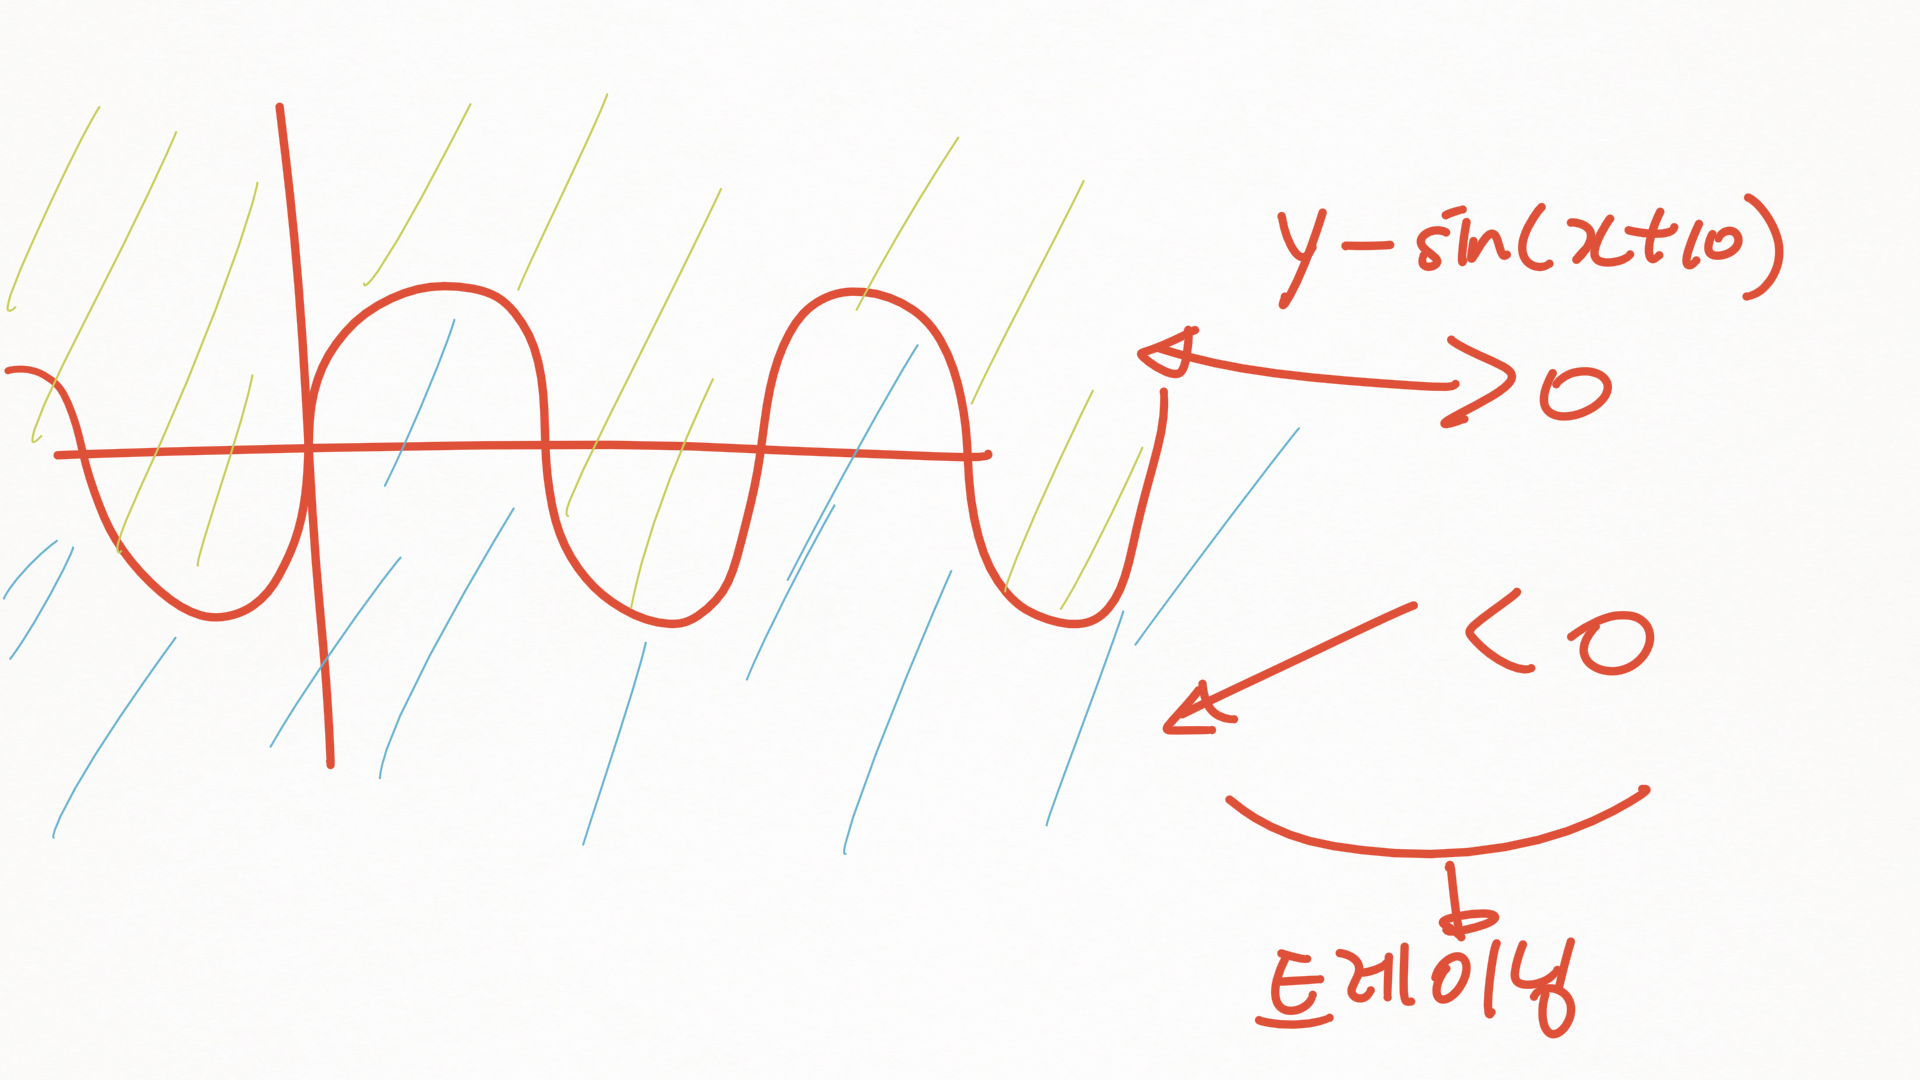 y-sin(x+10)
>0
<0
트레이닝